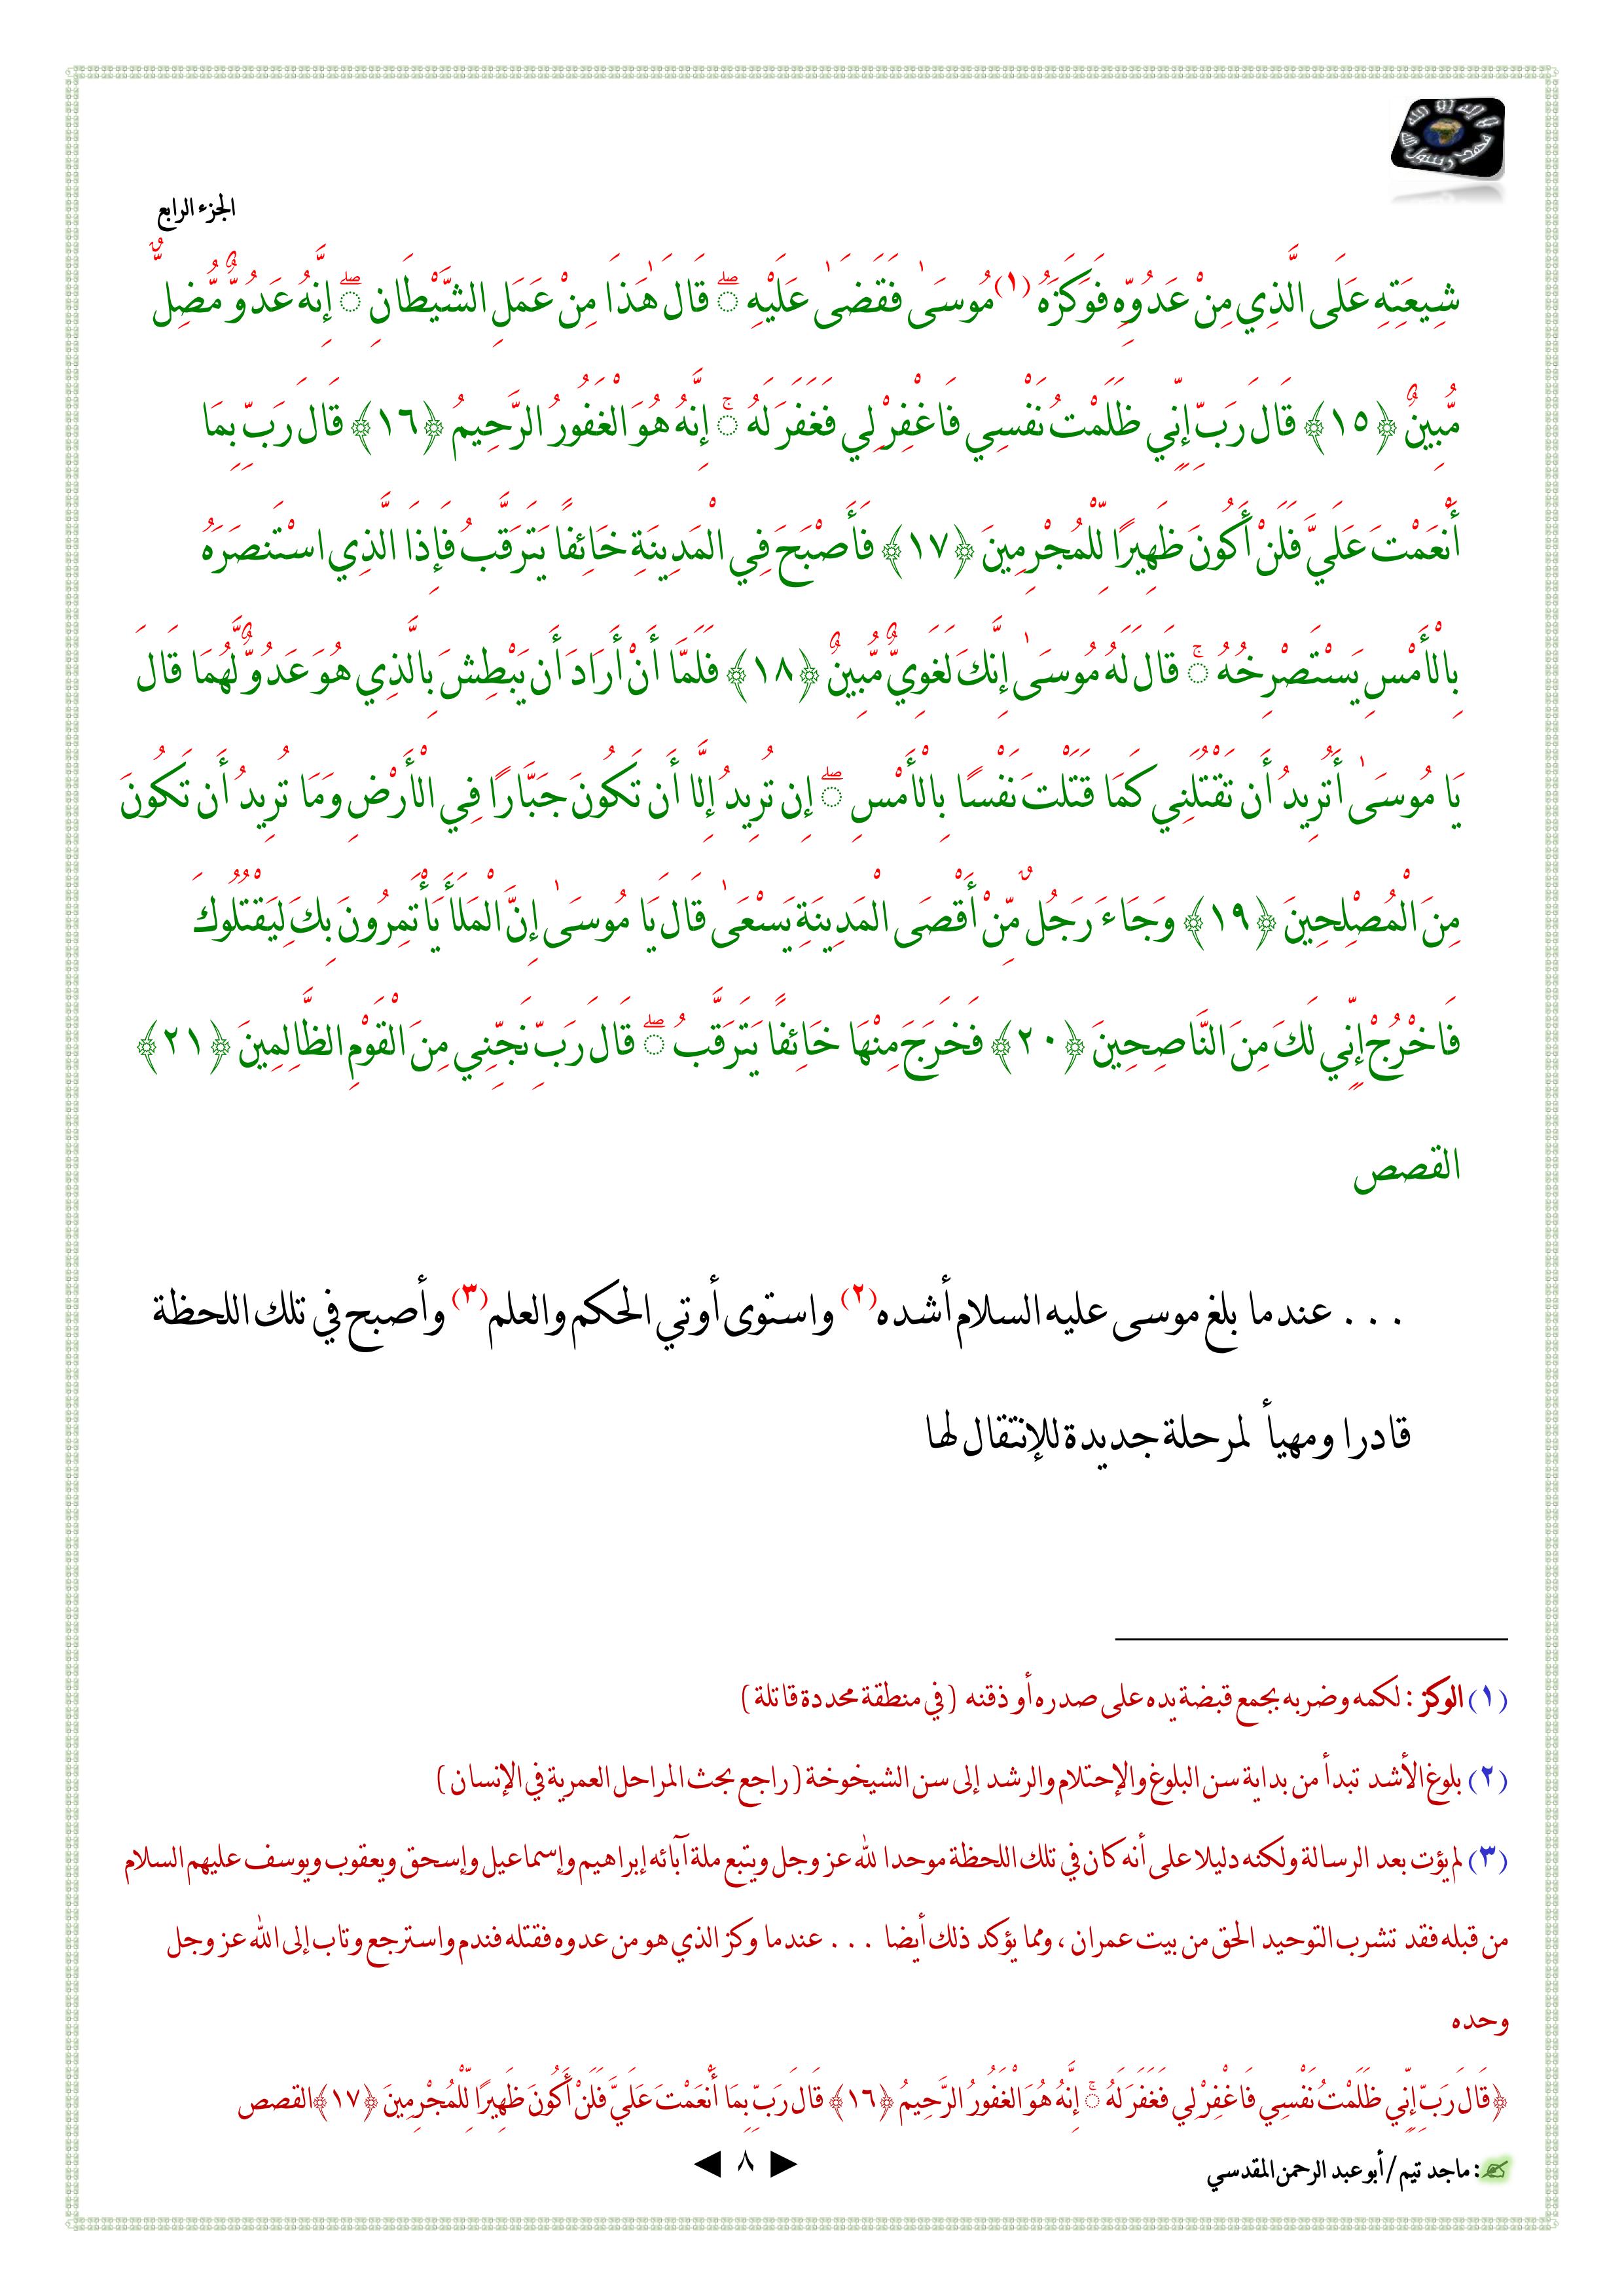 لا إله إلا الله
محمد رسول الله
الجزء الرابع
شِيعَتِهِ عَلَى الَّذِي مِنْ عَدُوِّهِ فَوَكَزَهُ (١) مُوسَىٰ فَقَضَىٰ عَلَيْهِ ۖ قَالَ هَٰذَا مِنْ عَمَلِ الشَّيْطَانِ ۖ إِنَّهُ عَدُوٌّ مُّضِلٌّ
مُّبِينٌ ﴿١٥﴾ قَالَ رَبِّ إِنِّي ظَلَمْتُ نَفْسِي فَاغْفِرْ لِي فَغَفَرَ لَهُ ۚ إِنَّهُ هُوَ الْغَفُورُ الرَّحِيمُ ﴿١٦﴾ قَالَ رَبِّ بِمَا
أَنْعَمْتَ عَلَيَّ فَلَنْ أَكُونَ ظَهِيرًا لِّلْمُجْرِمِينَ ﴿١٧﴾ فَأَصْبَحَ فِي الْمَدِينَةِ خَائِفًا يَتَرَقَّبُ فَإِذَا الَّذِي اسْتَنصَرَهُ
بِالْأَمْسِ يَسْتَصْرِخُهُ ۚ قَالَ لَهُ مُوسَىٰ إِنَّكَ لَغَوِيٌّ مُّبِينٌ ﴿١٨﴾ فَلَمَّا أَنْ أَرَادَ أَن يَبْطِشَ بِالَّذِي هُوَ عَدُوٌّ لَّهُمَا قَالَ
يَا مُوسَىٰ أَتُرِيدُ أَن تَقْتُلَنِي كَمَا قَتَلْتَ نَفْسًا بِالْأَمْسِ ۖ إِن تُرِيدُ إِلَّا أَن تَكُونَ جَبَّارًا فِي الْأَرْضِ وَمَا تُرِيدُ أَن تَكُونَ
مِنَ الْمُصْلِحِينَ ﴿١٩﴾ وَجَاءَ رَجُلٌ مِّنْ أَقْصَى الْمَدِينَةِ يَسْعَىٰ قَالَ يَا مُوسَىٰ إِنَّ الْمَلَأَ يَأْتَمِرُونَ بِكَ لِيَقْتُلُوكَ
فَاخْرُجْ إِنِّي لَكَ مِنَ النَّاصِحِينَ ﴿٢٠﴾ فَخَرَجَ مِنْهَا خَائِفًا يَتَرَقَّبُ ۖ قَالَ رَبِّ نَجِّنِي مِنَ الْقَوْمِ الظَّالِمِينَ ﴿٢١﴾
القصص
... عندما بلغ موسى عليه السلام أشده (٢) واستوى أوتي الحكم والعلم (٣) وأصبح في تلك اللحظة
قادرا ومهيأ لمرحلة جديدة للإنتقال لها
(١) الوكز : لكمه وضربه بجمع قبضة يده على صدره أو ذقنه (في منطقة محددة قاتلة)
(٢) بلوغ الأشد تبدأ من بداية سن البلوغ والإحتلام والرشد إلى سن الشيخوخة ( راجع بحث المراحل العمرية في الإنسان )
(٣) لم يؤت بعد الرسالة ولكنه دليلا على أنه كان في تلك اللحظة موحدا لله عز وجل ويتبع ملة آبائه إبراهيم وإسماعيل وإسحق ويعقوب ويوسف عليهم السلام
من قبله فقد تشرب التوحيد الحق من بيت عمران ، ومما يؤكد ذلك أيضا ... عندما وكز الذي هو من عدوه فقتله فندم واسترجع وتاب إلى الله عز وجل
وحده
﴿قَالَ رَبِّ إِنِّي ظَلَمْتُ نَفْسِي فَاغْفِرْ لِي فَغَفَرَ لَهُ ۚ إِنَّهُ هُوَ الْغَفُورُ الرَّحِيمُ ﴿١٦﴾ قَالَ رَبِّ بِمَا أَنْعَمْتَ عَلَيَّ فَلَنْ أَكُونَ ظَهِيرًا لِّلْمُجْرِمِينَ ﴿١٧﴾ القصص
: ماجد تيم / أبو عبد الرحمن المقدسي
٨